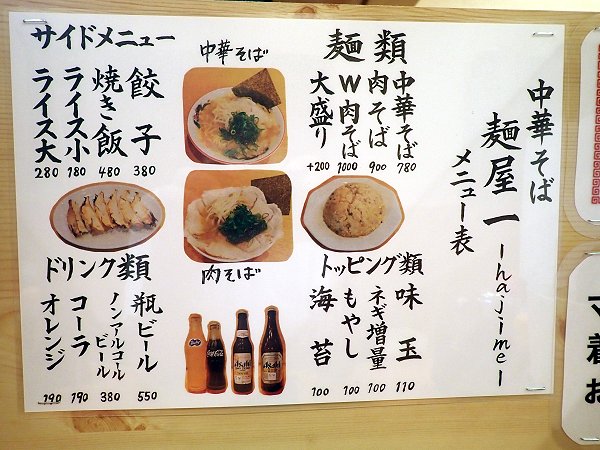 中華そば
麺屋 一 ーhajimeー
メニュー表
麺類
中華そば 780
肉そば 900
W肉そば 1000
大盛り +200
中華そば
肉そば
サイドメニュー
餃子 380
焼き飯 480
ライス小 180
ライス大 280
トッピング類
味玉 110
ネギ増量 100
もやし 100
海苔 100
ドリンク類
瓶ビール 550
ノンアルコールビール 380
コーラ 190
オレンジ 190
Coca-Cola
Asahi
Asahi
マ
着
お